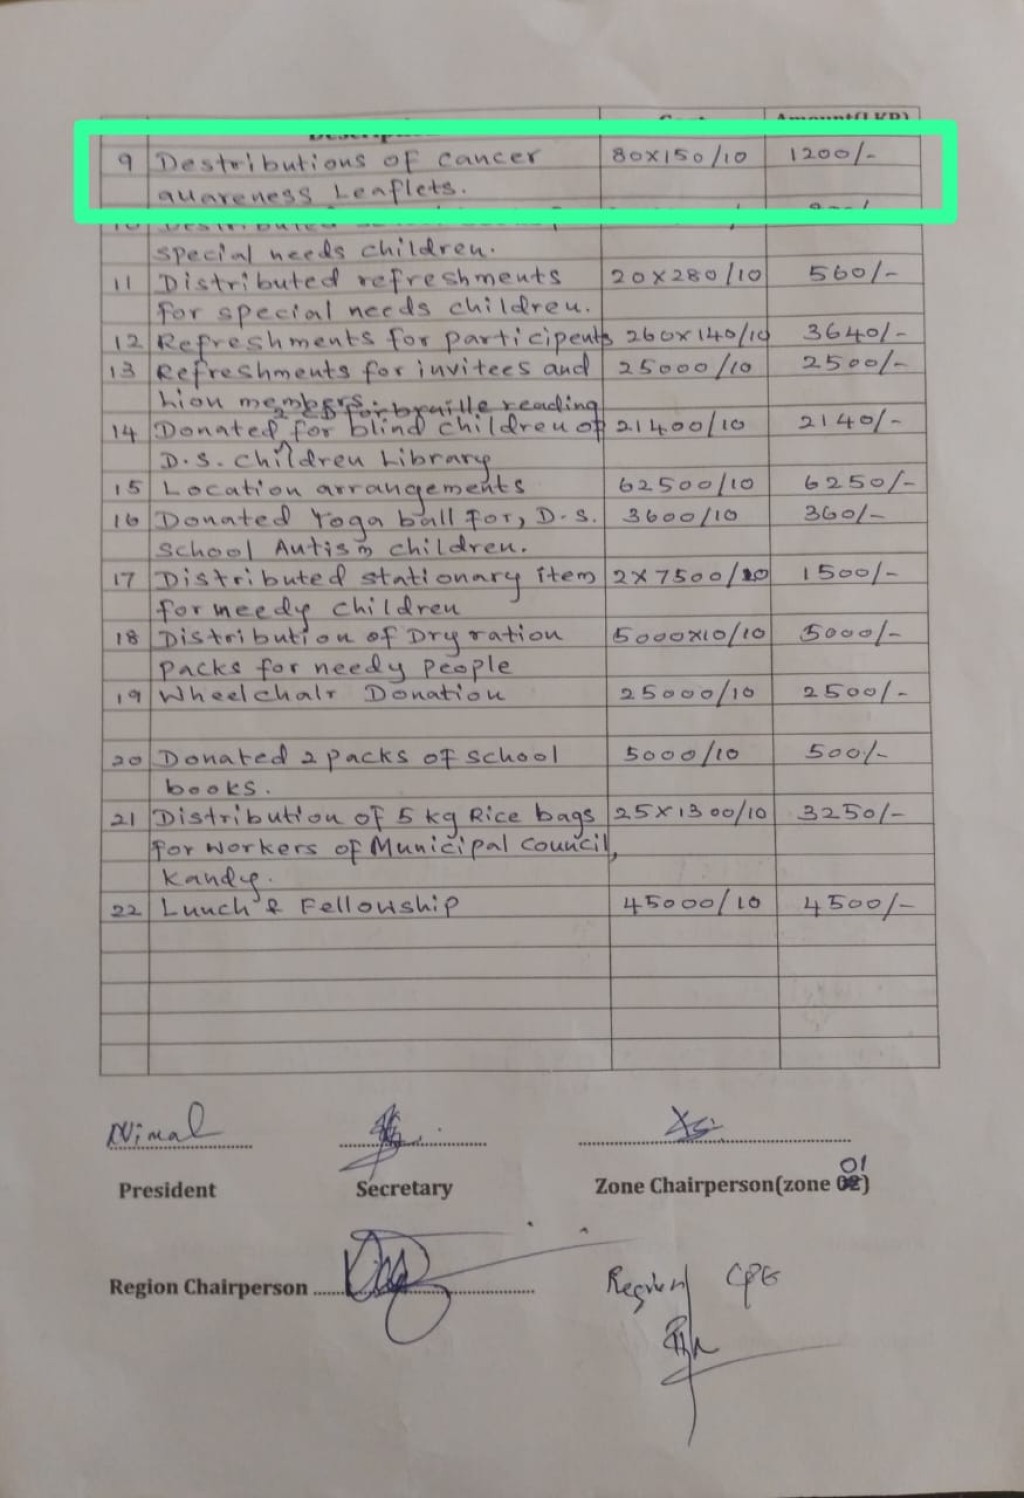 Amount(LKR)
9 Destributions of cancer 80x150/10 1200/-
auareness Leaflets.
10
special needs children.
11 Distributed refreshments 20x280/10 560/-
for special needs children.
12 Refreshments for participents 260x140/10 3640/-
13 Refreshments for invitees and 25000/10 2500/-
Lion members
2 CD for braille reading
14 Donated for blind children of 21400/10 2140/-
D.S. children Library
15 Location arrangements 62500/10 6250/-
16 Donated Yoga ball for, D.S. 3600/10 360/-
school Autism children.
17 Distributed stationary item 2x7500/10 1500/-
for needy children
18 Distribution of Dry ration 5000x10/10 5000/-
packs for needy people
19 Wheelchair Donation 25000/10 2500/-
20 Donated 2 packs of school 5000/10 500/-
books.
21 Distribution of 5 kg Rice bags 25x1300/10 3250/-
for workers of Municipal council,
Kandy.
22 Lunch & Fellowship 45000/10 4500/-
Nimal
President Secretary Zone Chairperson(zone 01)
Region Chairperson
Region CPG